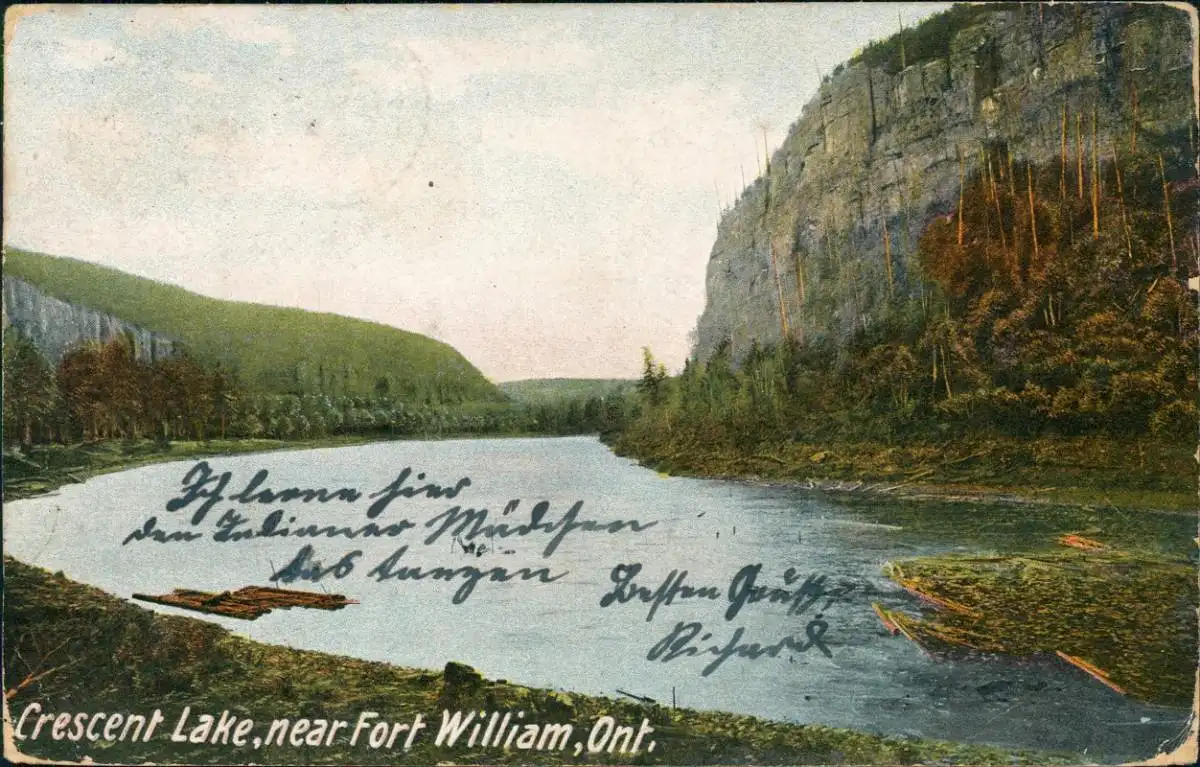 Ich lerne hier
den Indianer Mädchen
das tanzen
Besten Gruß
Richard
Crescent Lake, near Fort William, Ont.